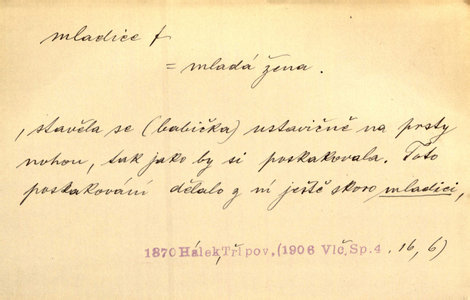 mladice f
= mladá žena.
, stavěla se (babička) ustavičně na prsty
nohou, tak jako by si poskakovala. Toto
poskakování dělalo z ní ještě skoro mladici,
1870 Hálek Tři pov, (1906 Vlč, Sp. 4 . 16, 6)